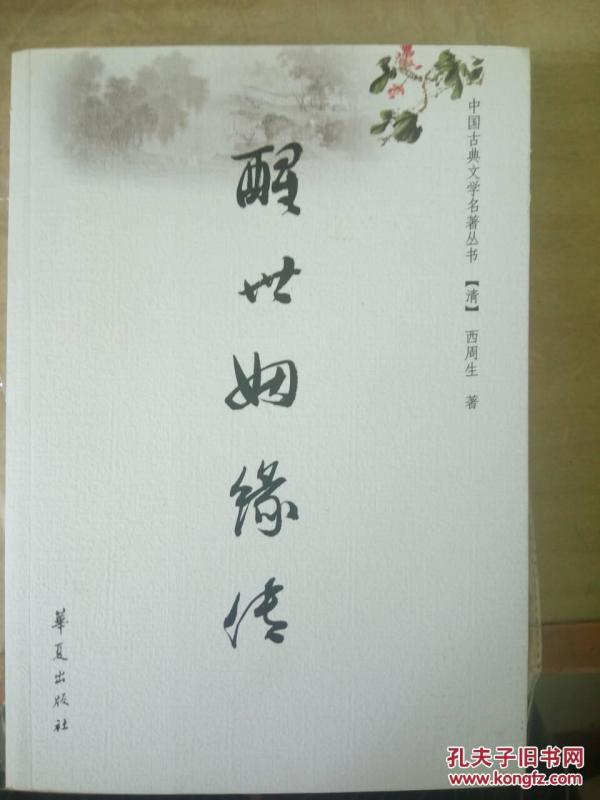 中国古典文学名著丛书 【清】 西周生 著
醒世姻缘传
華夏出版社
孔夫子旧书网
www.kongfz.com